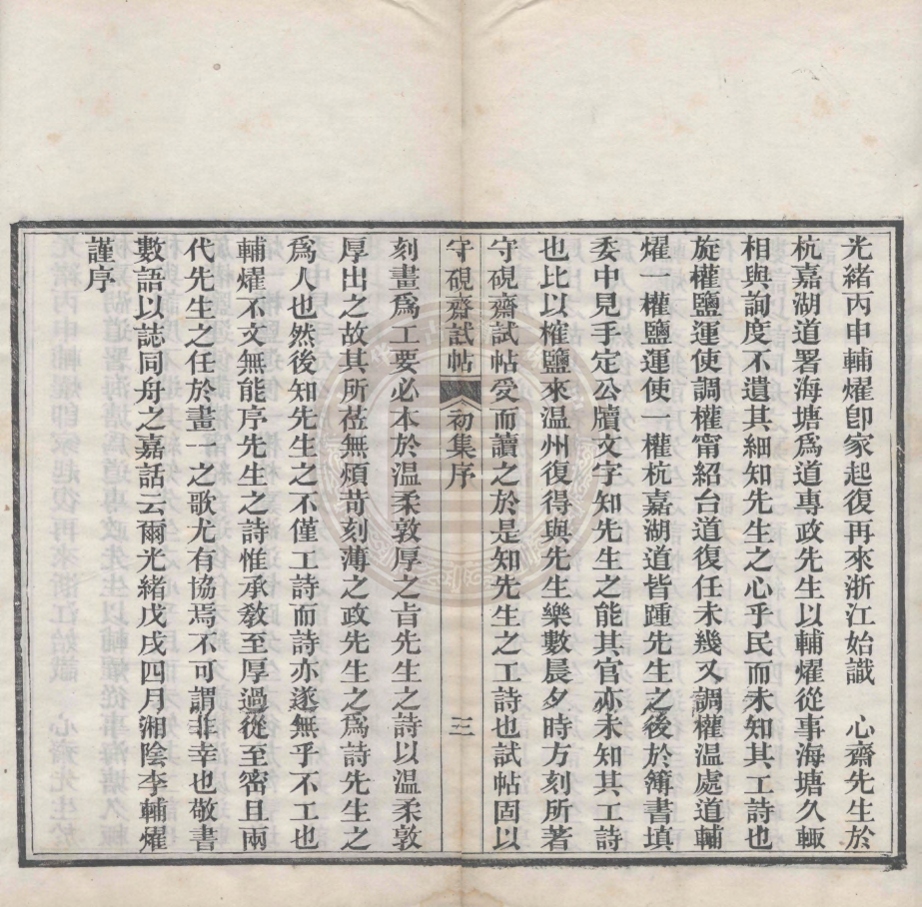 光緒丙申輔燿卽家起復再來浙江始識　心齋先生於
杭嘉湖道署海塘爲道專政先生以輔燿從事海塘久輙
相與詢度不遺其細知先生之心乎民而未知其工詩也
旋權鹽運使調權甯紹台道復任未幾又調權温處道輔
燿一權鹽運使一權杭嘉湖道皆踵先生之後於簿書填
委中見手定公牘文字知先生之能其官亦未知其工詩
也比以榷鹽來温州復得與先生樂數晨夕時方刻所著
守硯齋試帖受而讀之於是知先生之工詩也試帖固以
守硯齋試帖　初集序　三
刻畫爲工要必本於温柔敦厚之旨先生之詩以温柔敦
厚出之故其所莅無煩苛刻薄之政先生之爲詩先生之
爲人也然後知先生之不僅工詩而詩亦遂無乎不工也
輔燿不文無能序先生之詩惟承敎至厚過從至密且兩
代先生之任於畫一之歌尤有協焉不可謂非幸也敬書
數語以誌同舟之嘉話云爾光緒戊戌四月湘陰李輔燿
謹序